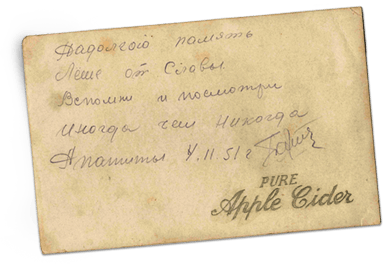 Надолгою память
Леше от Славы
Вспомни и посмотри
иногда чем никогда
Апатиты 4.II.51 г
PURE
Apple Cider